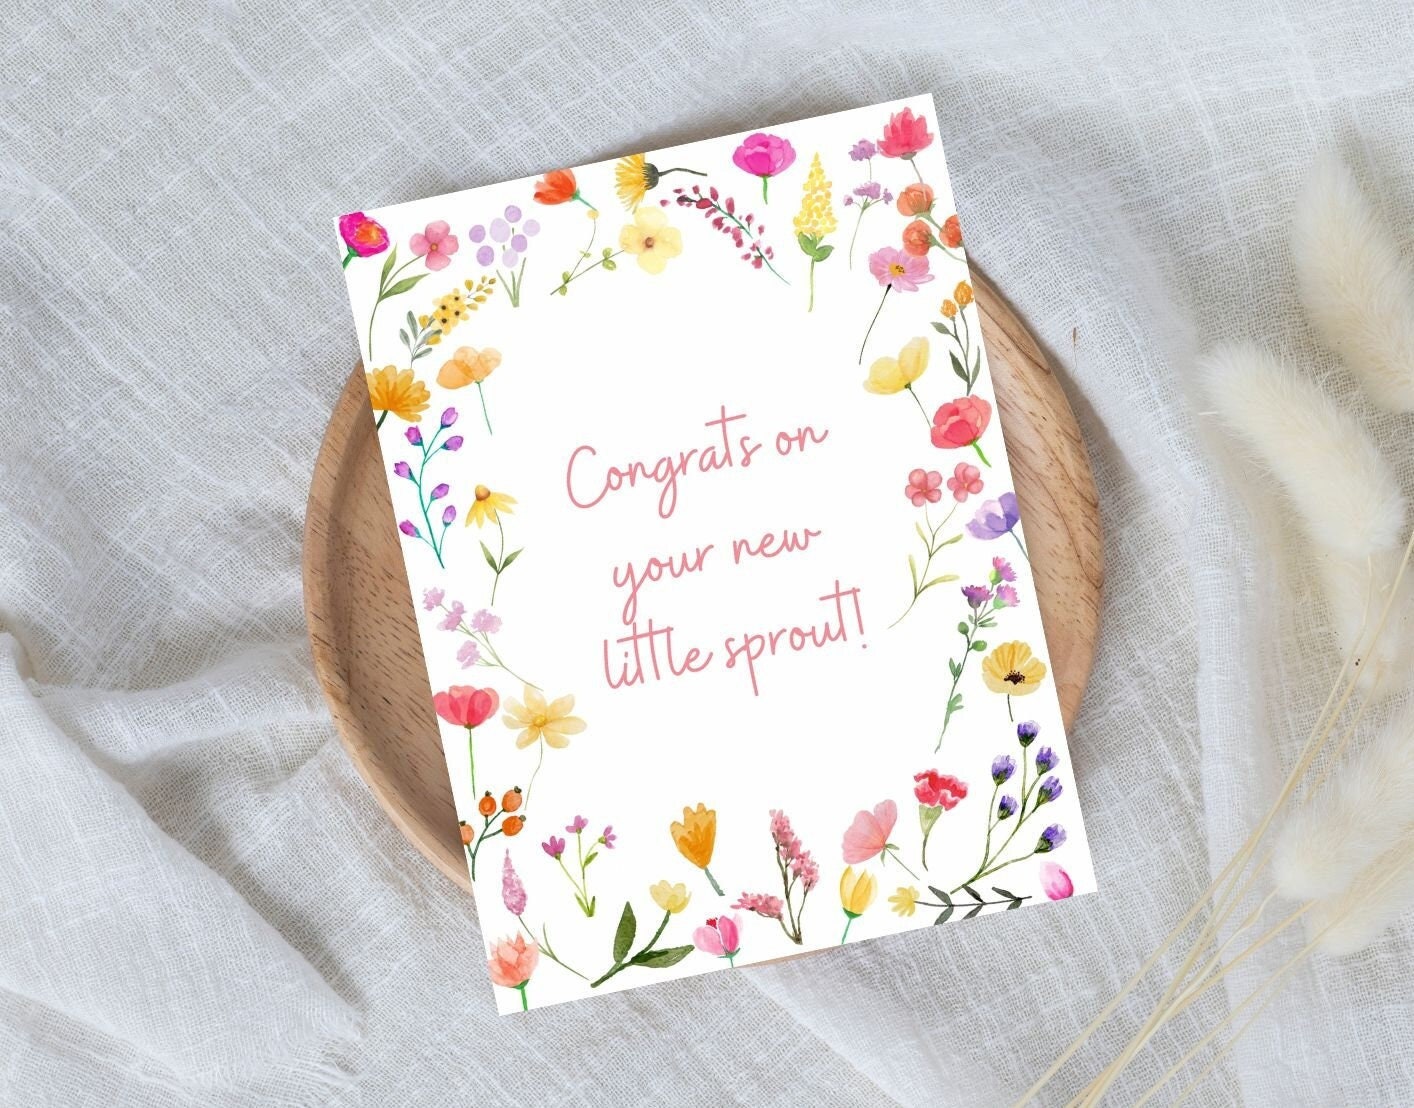 Congrats on
your new
little sprout!